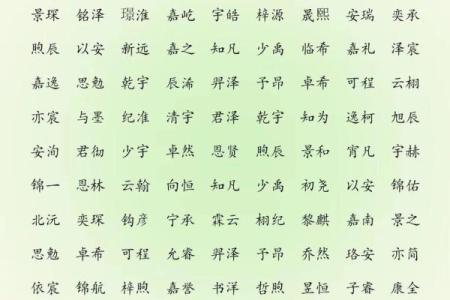 景琛 铭泽 璟淮 嘉屹 宇皓 梓源 晟熙 安瑞 奕承
煦辰 以安 新远 嘉之 知凡 少禹 临希 嘉礼 泽宸
嘉逸 思勉 乾宇 辰浠 羿泽 予昂 卓希 可程 云栩
亦宸 与墨 纪准 清宇 君泽 乾宇 知为 逸柯 旭辰
安洵 君彻 少宇 卓然 恩贤 煦辰 景和 宵凡 宇赫
锦一 恩林 云翰 向恒 知凡 少禹 初尧 以安 锦佑
北沅 奕琛 钧彦 宁承 霖云 栩纪 黎麒 嘉南 景之
思勉 卓希 可程 允睿 羿泽 予昂 乔然 珞安 亦简
依宸 锦航 梓煦 嘉誉 书洋 哲煦 昱恒 子睿 康全